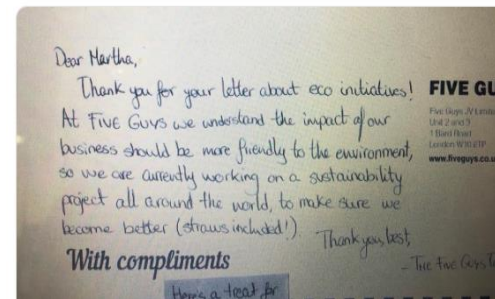 Dear Martha,
Thank you for your letter about eco initiatives!
At FIVE GUYS we understand the impact of our
business should be more friendly to the environment,
so we are currently working on a sustainability
project all around the world, to make sure we
become better (straws included!).
Thank you, best,
- The Five Guys
With compliments
Here's a treat for
FIVE GU
Five Guys JV Limite
Unit 2 and 3
1 Bard Road
London W10 6TP
www.fiveguys.co.u